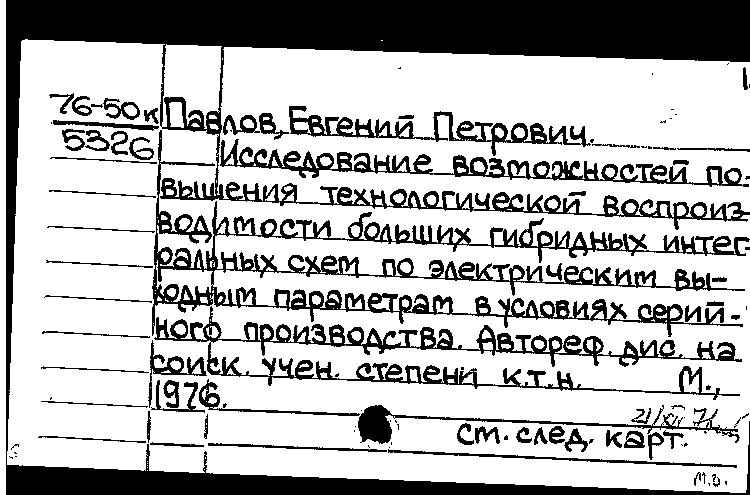 1.
76-50к Павлов, Евгений Петрович.
5326 Исследование возможностей по-
вышения технологической воспроиз-
водимости больших гибридных интег-
ральных схем по электрическим вы-
ходным параметрам в условиях серий-
ного производства. Автореф. дис. на
соиск. учен. степени к.т.н. М.,
1976.
21/XII
см. след. карт.
м.в.